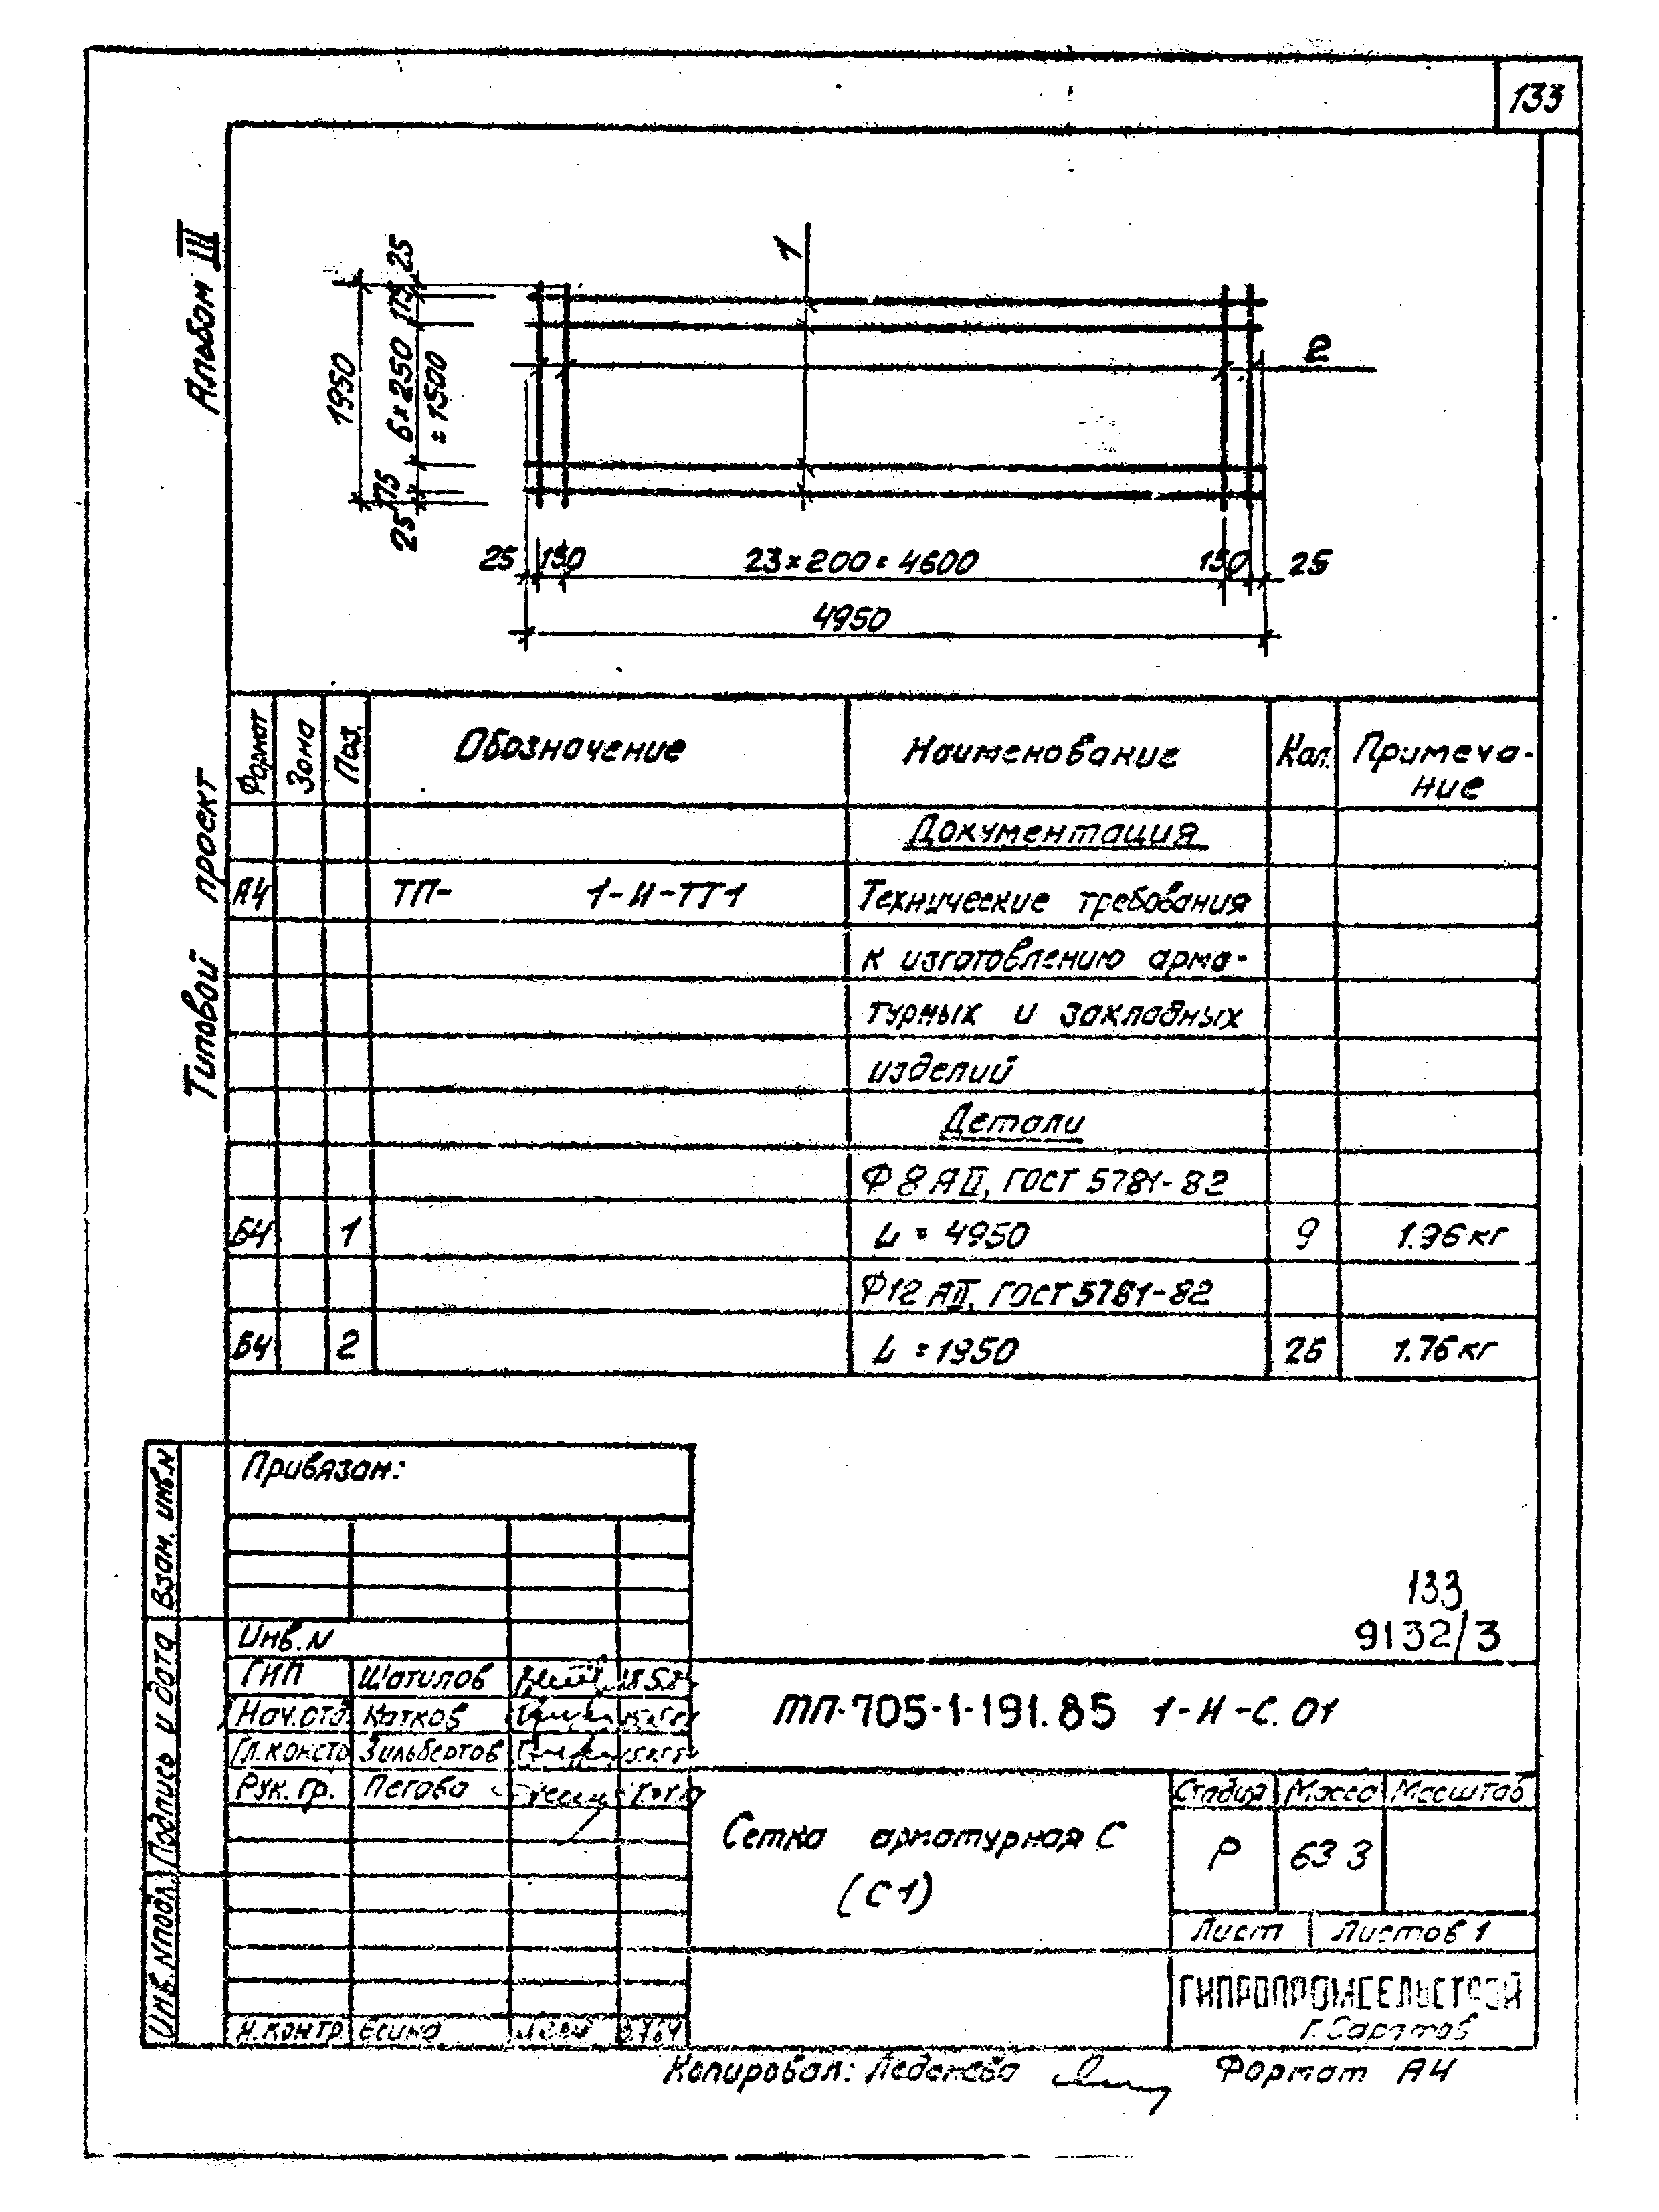 133
Альбом III
Типовой проект
1
2
25
175
6×250
=1500
1950
175
25
25 150 23×200=4600 150 25
4950
Формат Зона Поз. Обозначение Наименование Кол. Примеча-
ние
Документация
А4 ТП- 1-И-ТТ1 Технические требования
к изготовлению арма-
турных и закладных
изделий
Детали
Ф 8 АII, ГОСТ 5781-82
Б4 1 L = 4950 9 1.96 кг
Ф12 АII, ГОСТ 5781-82
Б4 2 L = 1950 26 1.76 кг
Привязан:
Взам. инв.N
Подпись и дата
Инв.Nподл.
133
9132/3
Инв.N
ГИП Шатилов
Нач.отд. Катков
Гл.констр Зильбертов
Рук. гр. Пегова
Н.контр Есина
ТП-705-1-191.85 1-И-С.01
Сетка арматурная С
(С1)
Стадия Масса Масштаб
Р 63 3
Лист Листов 1
ГИПРОПРОМСЕЛЬСТРОЙ
г.Саратов
Копировал: Леденева Формат А4